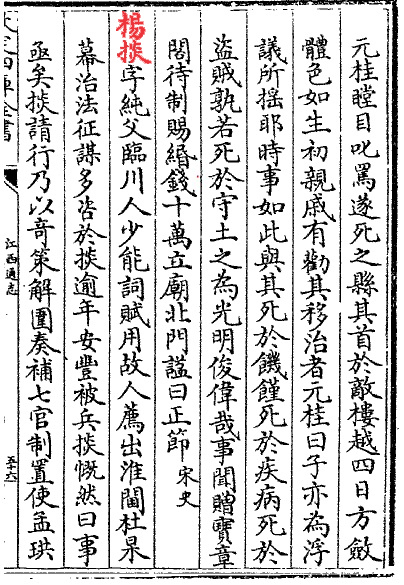 元桂瞠目叱罵遂死之縣其首於敵樓越四日方斂
體色如生初親戚有勸其移治者元桂曰子亦為浮
議所搖耶時事如此與其死於饑饉死於疾病死於
盜賊孰若死於守土之為光明俊偉哉事聞贈寶章
閣待制賜緡錢十萬立廟北門諡曰正節宋史
楊掞字純父臨川人少能詞賦用故人薦出淮閫杜杲
幕治法征謀多咨於掞逾年安豐被兵掞慨然曰事
亟矣掞請行乃以奇策解圍奏補七官制置使孟珙
江西通志
五十六